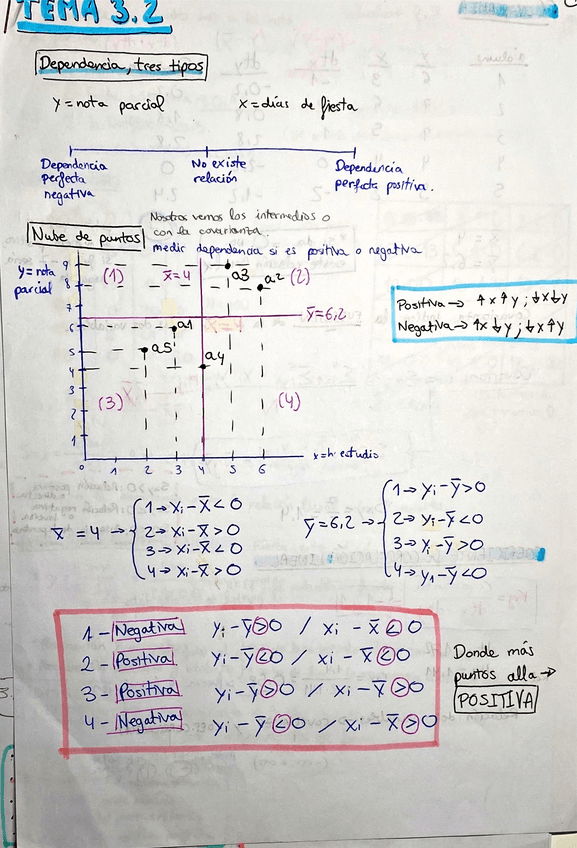 TEMA 3.2
Dependencia, tres tipos
y = nota parcial x = días de fiesta
Dependencia perfecta negativa
No existe relación
Dependencia perfecta positiva.
Nosotros vemos los intermedios o
con la covarianza.
medir dependencia si es positiva o negativa
Nube de puntos
y = nota parcial
9
8
7
6
5
4
3
2
1
0 1 2 3 4 5 6
x = h. estudio
(1) x̄ = 4 (2)
a3
a2
ȳ = 6,2
a1
a5
a4
(3) (4)
Positiva → ↑x↑y ; ↓x↓y
Negativa → ↑x ↓y ; ↓x ↑y
x̄ = 4 →
1 → xi - x̄ < 0
2 → xi - x̄ > 0
3 → xi - x̄ < 0
4 → xi - x̄ > 0
ȳ = 6,2 →
1 → yi - ȳ > 0
2 → yi - ȳ < 0
3 → yi - ȳ > 0
4 → y1 - ȳ < 0
1 - Negativa yi - ȳ > 0 / xi - x̄ < 0
2 - Positiva yi - ȳ < 0 / xi - x̄ < 0
3 - Positiva yi - ȳ > 0 / xi - x̄ > 0
4 - Negativa yi - ȳ < 0 / xi - x̄ > 0
Donde más
puntos alla →
POSITIVA